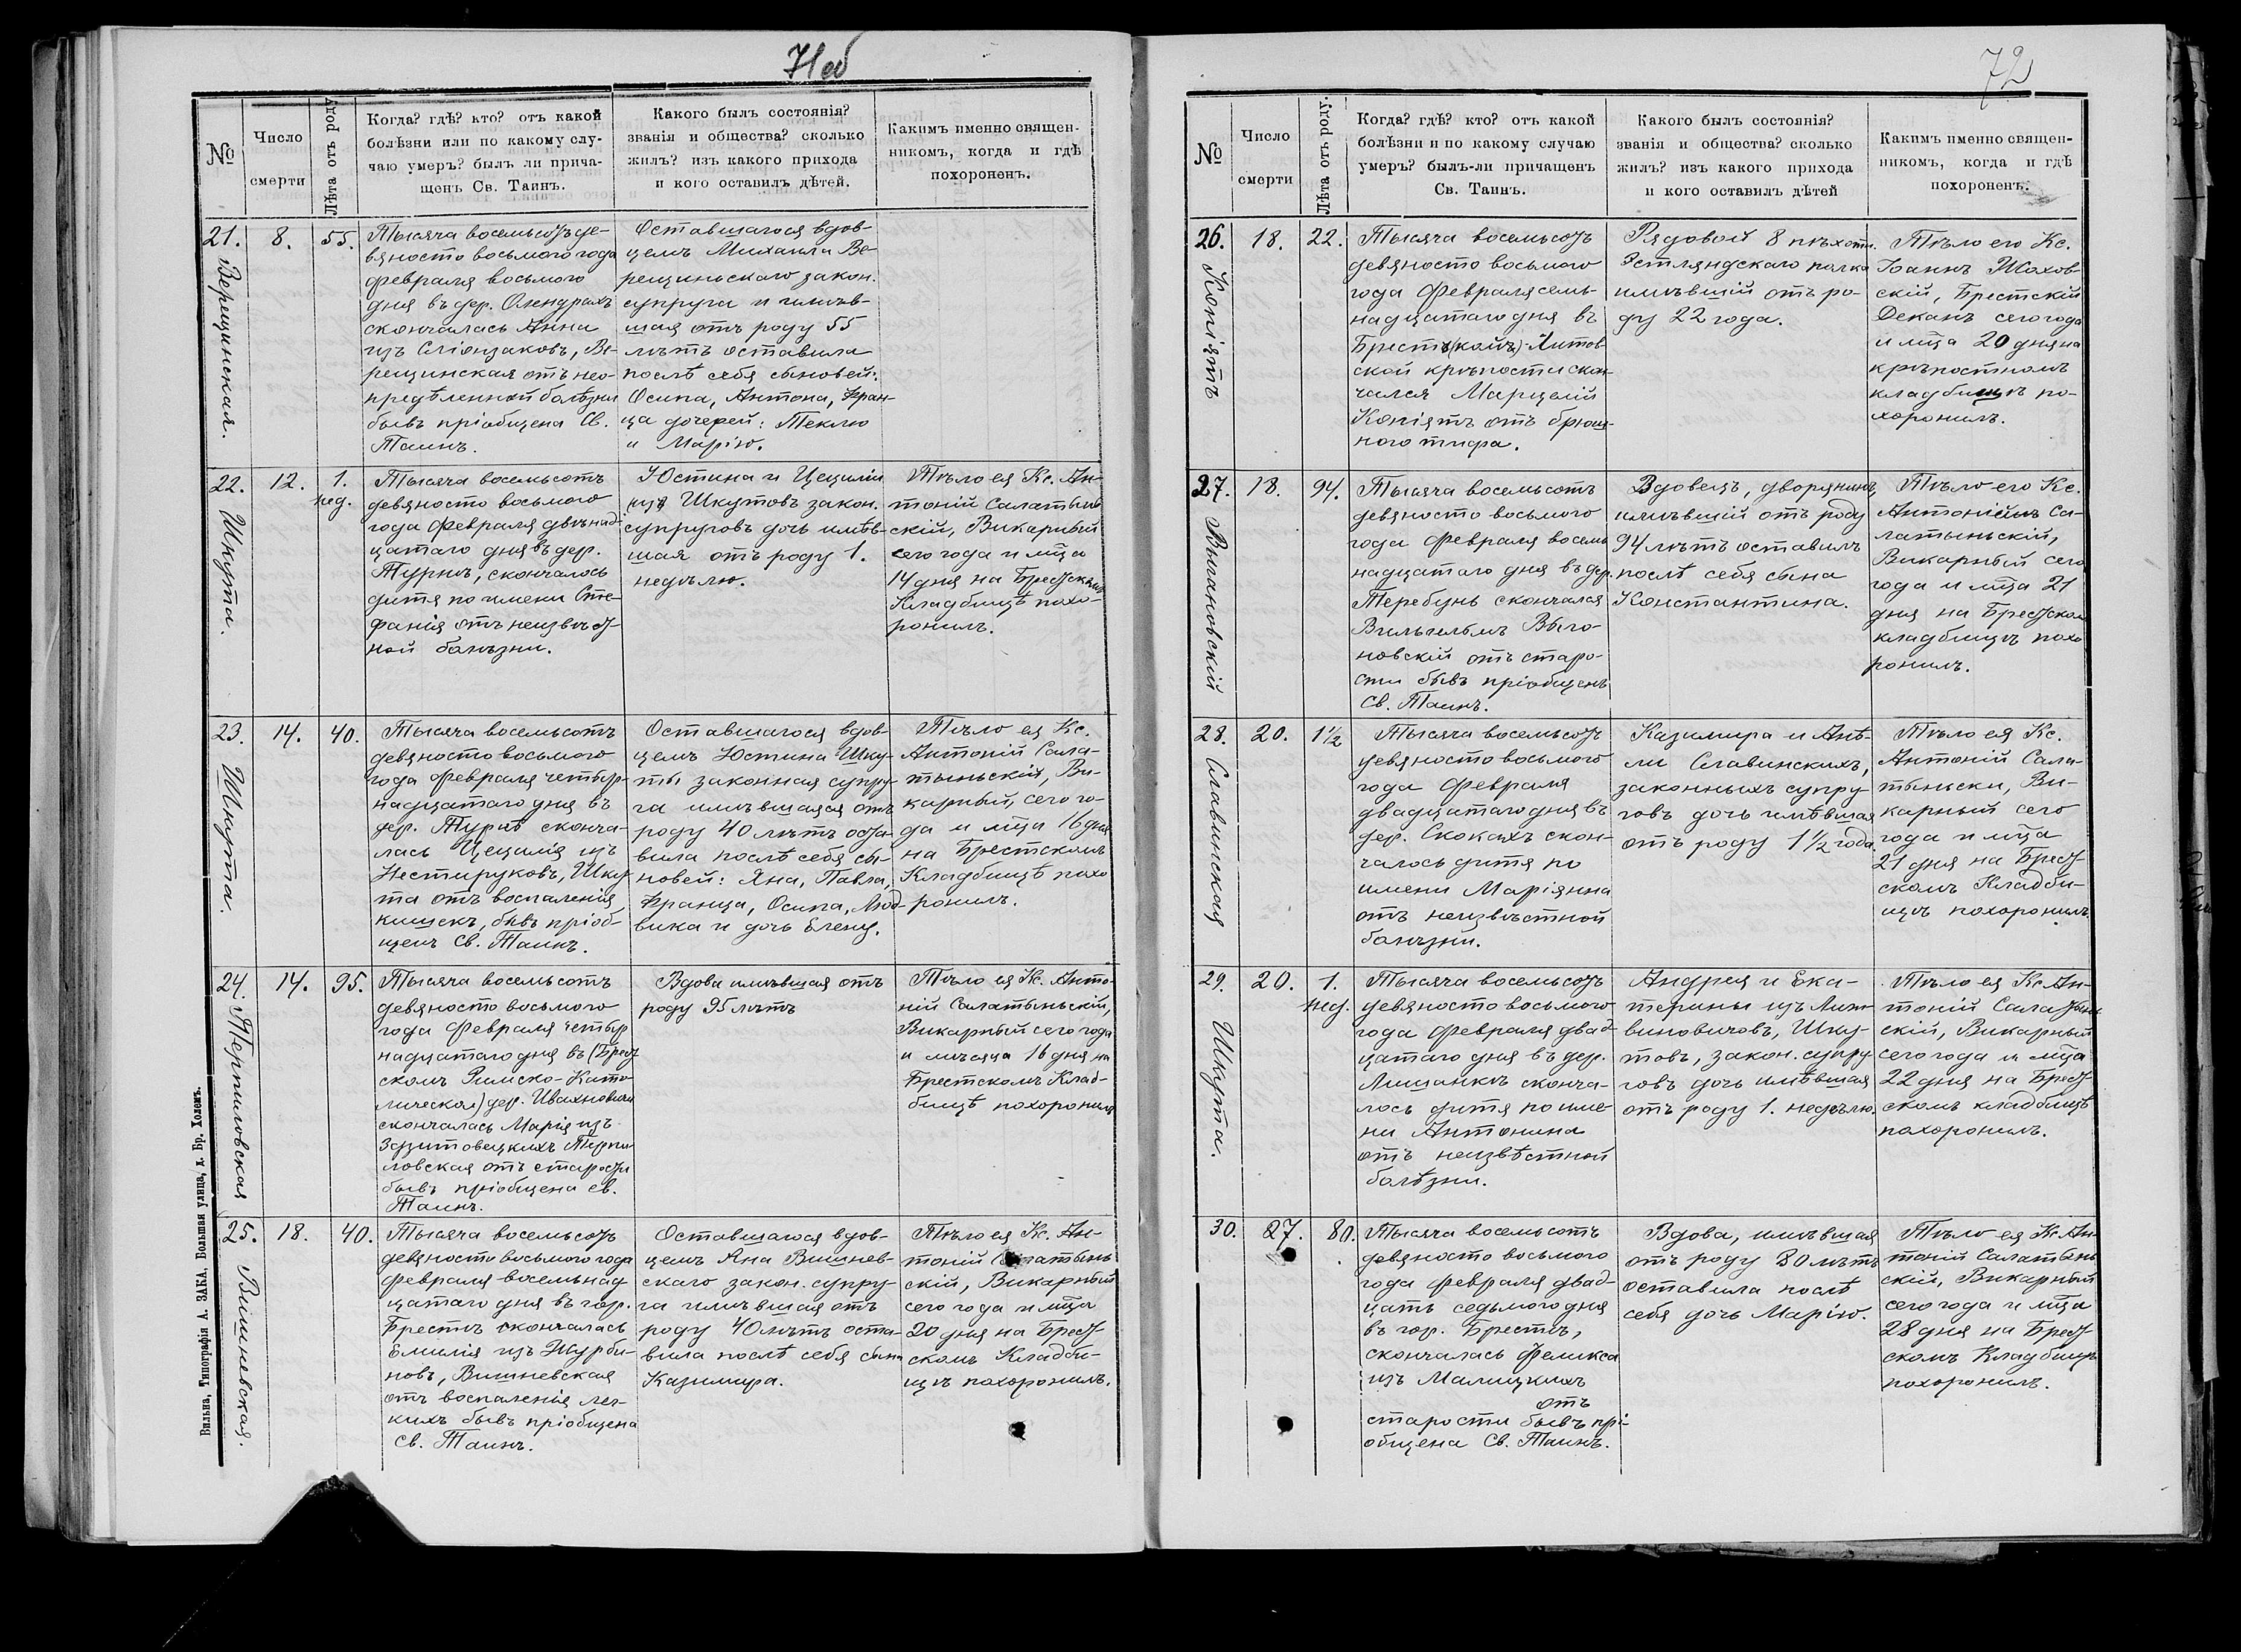 71об
№
Число
смерти
Лѣта отъ роду
Когда? гдѣ? кто? отъ какой
болѣзни или по какому слу-
чаю умеръ? былъ ли прича-
щенъ Св. Таинъ.
Какого былъ состоянія?
званія и общества? сколько
жилъ? изъ какого прихода
и кого оставилъ дѣтей.
Какимъ именно священ-
никомъ, когда и гдѣ
похороненъ.
21.
Верещинская.
8.
55.
Тысяча восемьсотъ де-
вяносто восьмого года
февраля восьмого
дня въ дер.
скончалась Анна
изъ Ве-
рещинская отъ нео-
предѣленной болѣзни
бывъ пріобщена Св.
Таинъ.
Оставшагося вдов-
цемъ Михаила Ве-
рещиньскаго закон.
супруга и имѣв-
шая отъ роду 55
лѣтъ оставила
послѣ себя сыновей:
Осипа, Антона, Фран-
ца дочерей: Теклю
и Марію.
22.
Шкута.
12.
1.
нед.
Тысяча восемьсотъ
девяносто восьмого
года февраля двѣнад-
цатаго дня въ дер.
Турнѣ, скончалось
дитя по имени Сте-
фанія отъ неизвѣст-
ной болѣзни.
Юстина и Цециліи
Шкутовъ закон.
супруговъ дочь имѣв-
шая отъ роду 1.
недѣлю.
Тѣло ея Кс. Ан-
тоній Салатынь-
скій, Викарный
сего года и мца
14 дня на Брестскомъ
Кладбищѣ похо-
ронилъ.
23.
Шкута.
14.
40.
Тысяча восемьсотъ
девяносто восьмого
года февраля четыр-
надцатаго дня въ
дер. Турнѣ сконча-
лась Цецилія изъ
Нестируковъ, Шку-
та отъ воспаленія
кишекъ, бывъ пріоб-
щенъ Св. Таинъ.
Оставшагося вдов-
цемъ Юстина Шку-
ты законная супру-
га имѣвшаяся отъ
роду 40 лѣтъ оста-
вила послѣ себя сы-
новей: Яна, Павла,
Франца, Осипа, Люд-
вика и дочь Елену.
Тѣло ея Кс.
Антоній Сала-
тыньскій, Ви-
карный, сего го-
да и мца 16 дня
на Брестскомъ
Кладбищѣ похо
ронилъ.
24.
Перпиловская
14.
95.
Тысяча восемьсотъ
девяносто восьмого
года февраля четыр
надцатаго дня въ (Брест
скомъ Римско-Като-
лическом) дер.
скончалась Марія изъ
ловская отъ старости
бывъ пріобщена св.
Таинъ.
Вдова имѣвшая отъ
роду 95 лѣтъ
Тѣло ея Кс. Анто-
ній Салатыньскій,
Викарный сего года
и мѣсяца 16 дня на
Брестскомъ Клад-
бищѣ похоронилъ
25.
Вишневская.
18.
40.
Тысяча восемьсотъ
девяносто восьмого года
февраля восемьнад
цатаго дня въ гор.
Брестѣ скончалась
Емилія изъ Журби-
новъ, Вишневская
отъ воспаленія лег-
кихъ бывъ пріобщена
св. Таинъ.
Оставшагося вдов-
цемъ Яна Вишнев-
скаго закон. супру-
га имѣвшая отъ
роду 40 лѣтъ оста-
вила послѣ себя сына
Казимира.
Тѣло ея Кс. Ан-
тоній Салатынь
скій, Викарный
сего года и мца
20 дня на Брест-
скомъ Кладби-
щѣ похоронилъ.
Вильна, Типографія А. ЗАКА, Большая улица, д. Бр. Холемъ.
72
№
Число
смерти
Лѣта отъ роду.
Когда? гдѣ? кто? отъ какой
болѣзни и по какому случаю
умеръ? былъ-ли причащенъ
Св. Таинъ.
Какого былъ состоянія?
званія и общества? сколько
жилъ? изъ какого прихода
и кого оставилъ дѣтей
Какимъ именно священ-
никомъ, когда и гдѣ
похороненъ.
26.
Копіятъ
18.
22.
Тысяча восемьсотъ
девяносто восьмого
года Февраля семь-
надцатаго дня въ
Литов-
ской крѣпости скон-
чался Марцелій
Копіятъ отъ брюш-
ного тифа.
Рядовой 8 пѣхотн.
Эстляндскаго полка
имѣвшій отъ ро-
ду 22 года.
Тѣло его Кс.
Іоаннъ Жохов-
скій, Брестскій
Деканъ сего года
и мца 20 дня на
крѣпостномъ
кладбищѣ по-
хоронилъ.
27.
Выгановскій
18.
94.
Тысяча восемьсотъ
девяносто восьмого
года Февраля восемь
надцатаго дня въ дер.
Теребунь скончался
Вильгельмъ Выго-
новскій отъ старо-
сти бывъ пріобщенъ
Св. Таинъ.
Вдовецъ, дворянинъ,
имѣвшій отъ роду
94 лѣтъ оставилъ
послѣ себя сына
Константина.
Тѣло его Кс.
Антоній Са-
латыньскій,
Викарный сего
года и мца 21
дня на Брестском
кладбищѣ похо
ронилъ.
28.
Славинская
20.
1½
Тысяча восемьсотъ
девяносто восьмого
года Февраля
двадцатаго дня въ
дер. Скокахъ скон-
чалось дитя по
имени Маріянна
отъ неизвѣстной
болѣзни.
Казимира и Анѣ-
ли Славинскихъ,
законныхъ супру-
говъ дочь имѣвшая
отъ роду 1½ года.
Тѣло ея Кс.
Антоній Сала-
тыньски, Ви-
карный сего
года и мца
21 дня на Брест-
скомъ Кладби-
щѣ похоронилъ
29.
Шкута.
20.
1.
нед.
Тысяча восемьсотъ
девяносто восьмого
года Февраля двад-
цатаго дня въ дер.
Лишанкѣ сконча-
лось дитя по име-
ни Антонина
отъ неизвѣстной
болѣзни.
Андрея и Ека-
терины изъ Лит-
виновичовъ, Шку-
товъ, закон. супру-
говъ дочь имѣвшая
отъ роду 1. недѣлю.
Тѣло ея Кс. Ан-
тоній Салатынь
скій, Викарный
сего года и мца
22 дня на Брест-
скомъ кладбищѣ
похоронилъ.
30.
27.
80.
Тысяча восемьсотъ
девяносто восьмого
года февраля двад-
цать седьмого дня
въ гор. Брестѣ,
скончалась Феликса
изъ Малицкихъ
отъ
старости бывъ прі-
общена Св. Таинъ.
Вдова, имѣвшая
отъ роду 80 лѣтъ
оставила послѣ
себя дочь Марію.
Тѣло ея Кс. Ан
тоній Салатынь
скій, Викарный
сего года и мца
28 дня на Брест-
скомъ Кладбищѣ
похоронилъ.